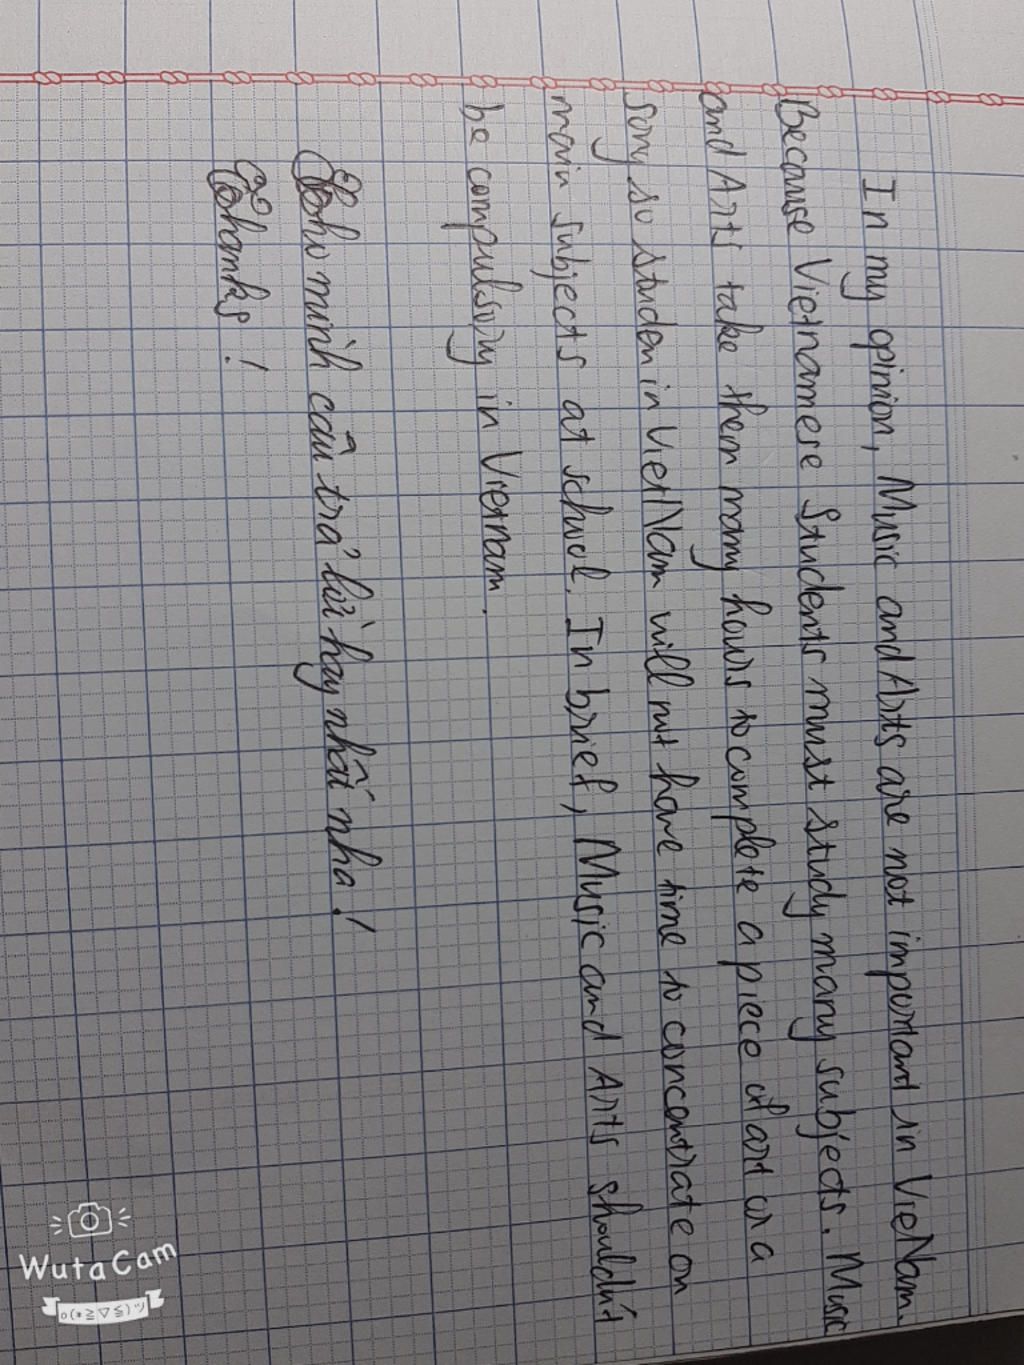 In my opinion, Music and Arts are not important in VieNam.
Because Vietnamese Students must study many subjects. Music
and Arts take them many hours to complete a piece of art or a
song so studen in VietNam will not have time to concentrate on
main subjects at school. In brief, Music and Arts shouldn't
be compulsory in Vietnam.
Cho mình câu trả lời hay nhất nha!
Thanks!
WutaCam
o(*≧▽≦)ツ